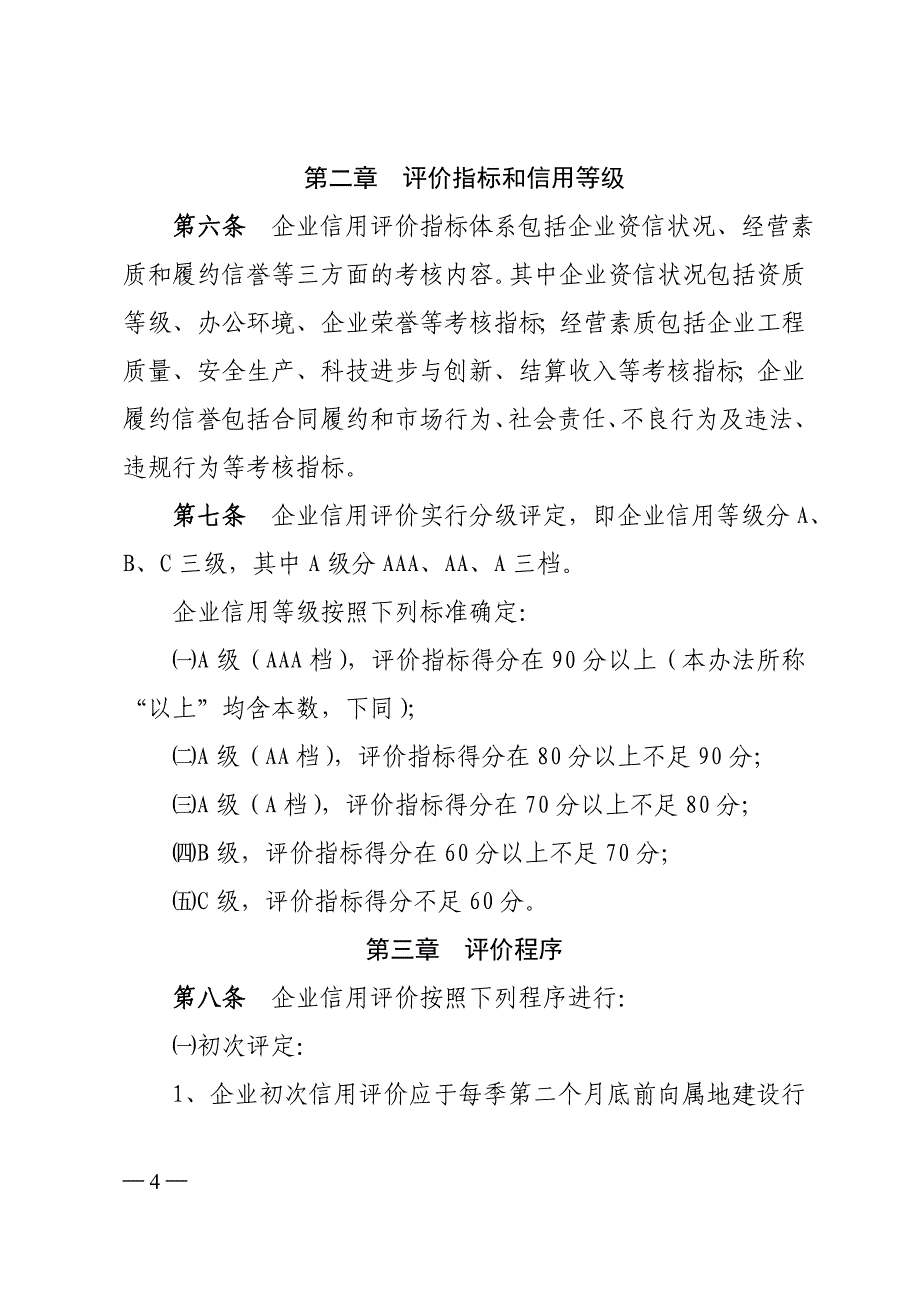 第二章　评价指标和信用等级
第六条　企业信用评价指标体系包括企业资信状况、经营素
质和履约信誉等三方面的考核内容。其中企业资信状况包括资质
等级、办公环境、企业荣誉等考核指标；经营素质包括企业工程
质量、安全生产、科技进步与创新、结算收入等考核指标；企业
履约信誉包括合同履约和市场行为、社会责任、不良行为及违法、
违规行为等考核指标。
第七条　企业信用评价实行分级评定，即企业信用等级分 A、
B、C 三级，其中 A 级分 AAA、AA、A 三档。
企业信用等级按照下列标准确定：
㈠A 级（AAA 档），评价指标得分在 90 分以上（本办法所称
“以上”均含本数，下同）；
㈡A 级（AA 档），评价指标得分在 80 分以上不足 90 分；
㈢A 级（A 档），评价指标得分在 70 分以上不足 80 分；
㈣B 级，评价指标得分在 60 分以上不足 70 分；
㈤C 级，评价指标得分不足 60 分。
第三章　评价程序
第八条　企业信用评价按照下列程序进行：
㈠初次评定：
1、企业初次信用评价应于每季第二个月底前向属地建设行
— 4 —